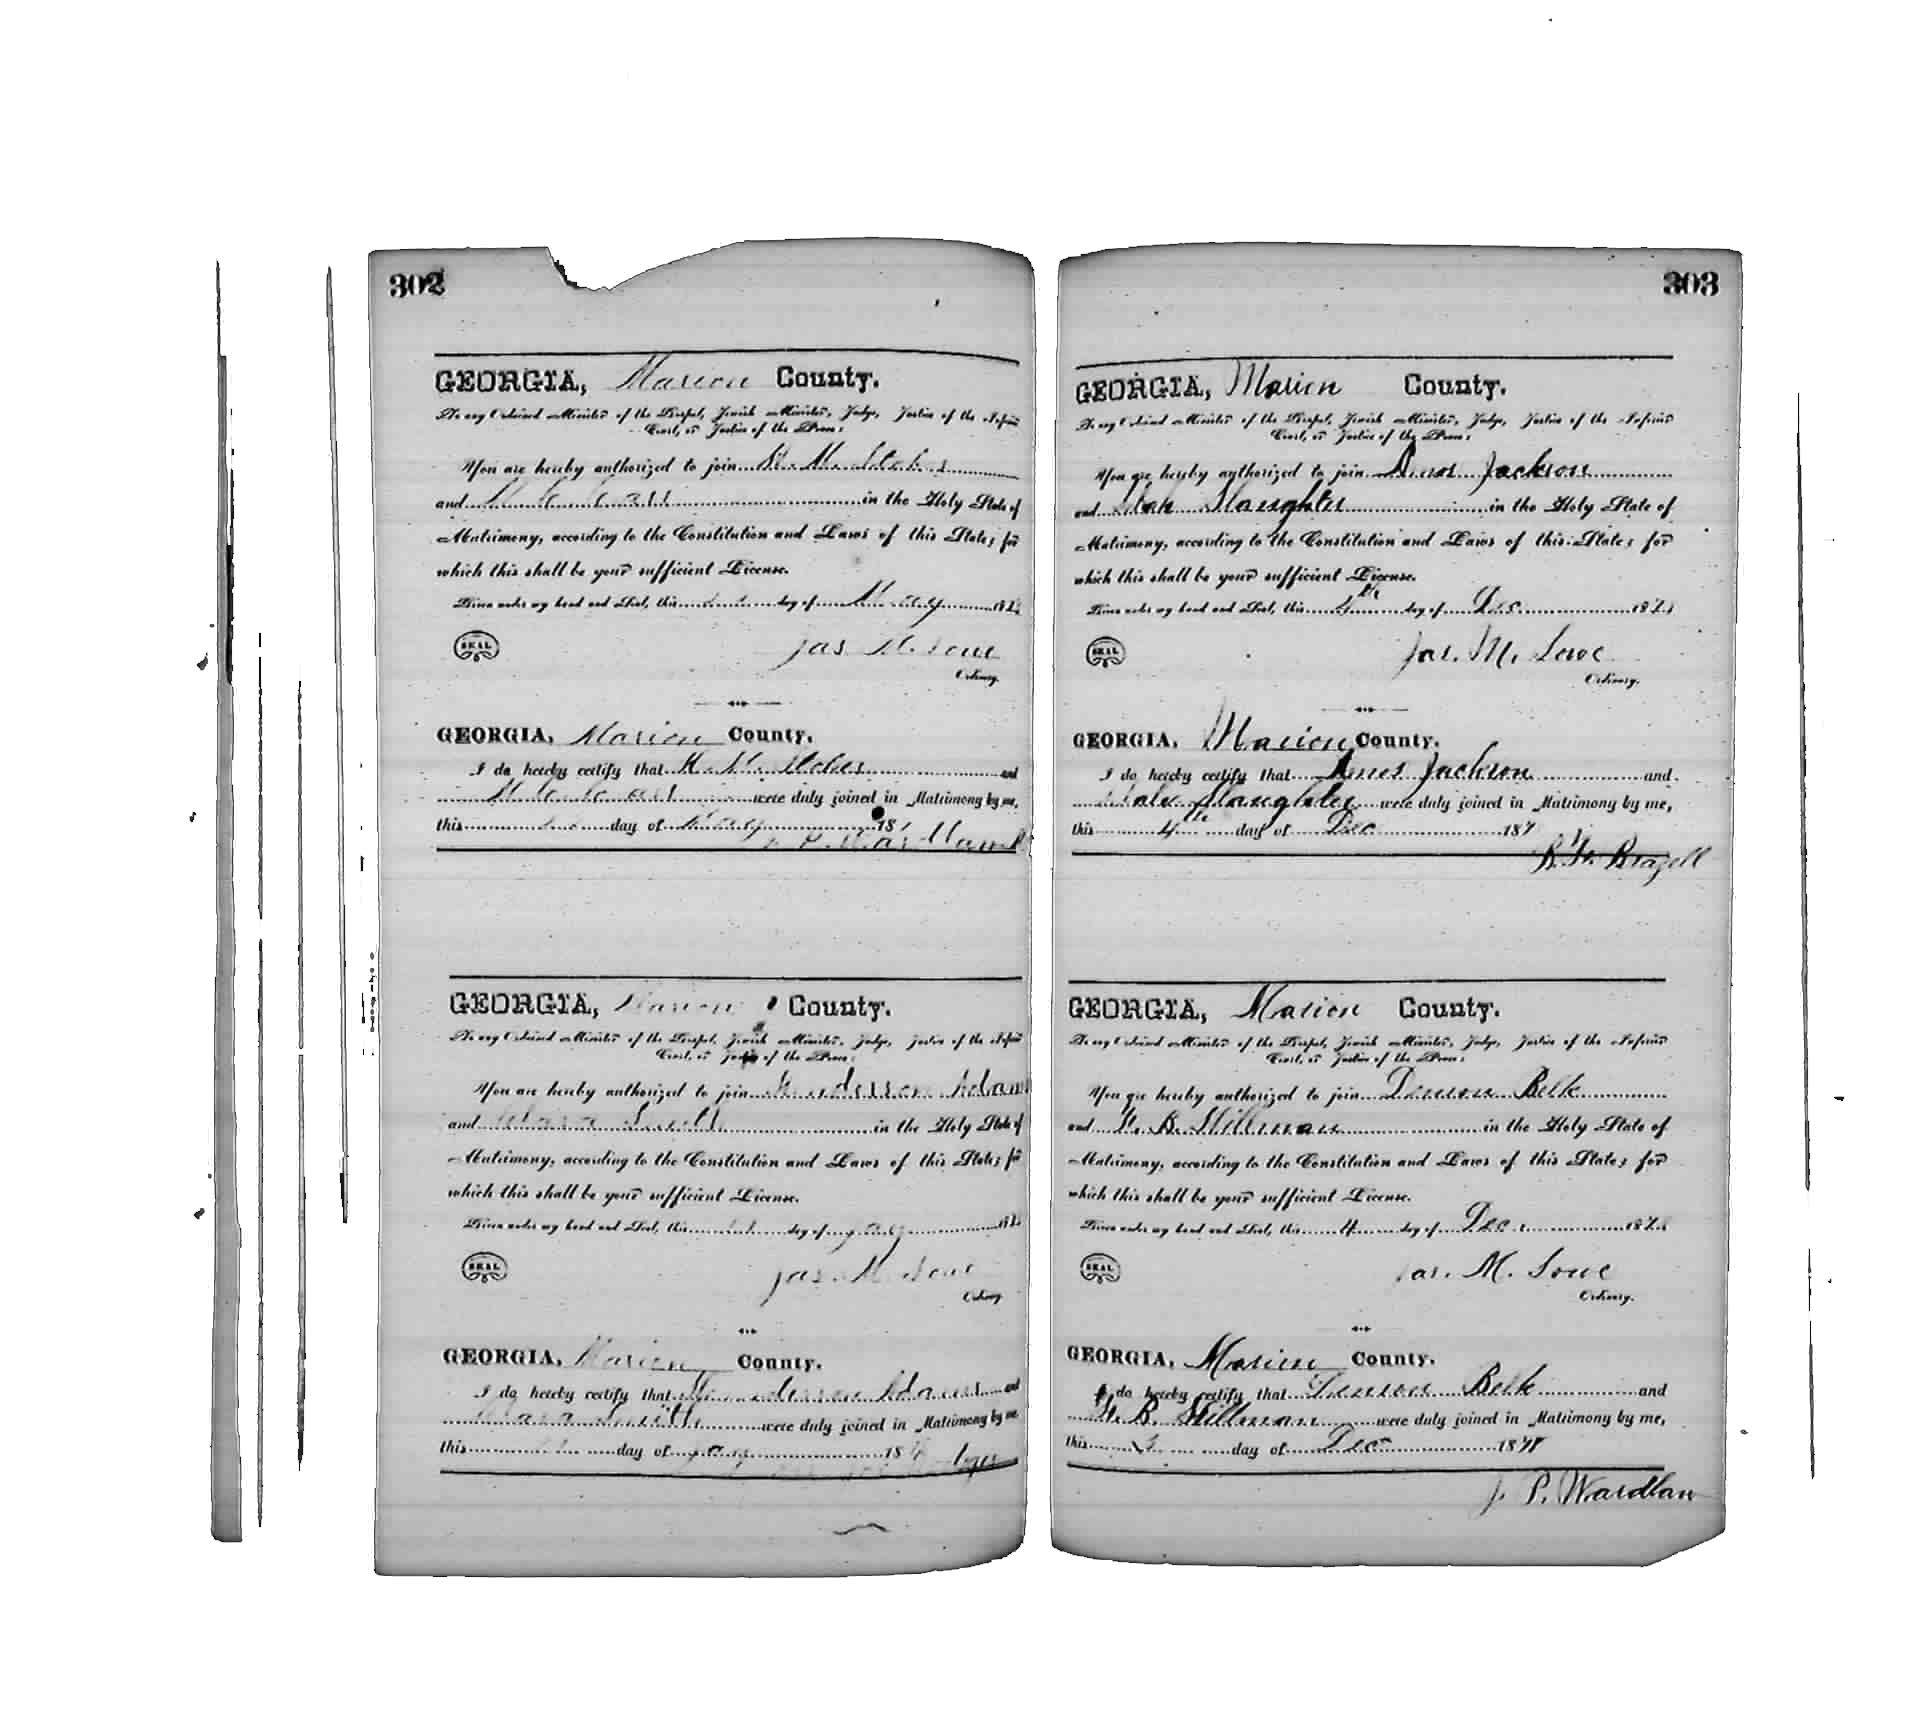 302
GEORGIA, Marion County.
To any Ordained Minister of the Gospel, Jewish Minister, Judge, Justice of the Inferior
Court, or Justice of the Peace:
You are hereby authorized to join
and in the Holy State of
Matrimony, according to the Constitution and Laws of this State; for
which this shall be your sufficient License.
Given under my hand and Seal, this day of May 187
SEAL
Jas M. Lowe
Ordinary.
GEORGIA, Marion County.
I do hereby certify that and
were duly joined in Matrimony by me,
this day of May 187
GEORGIA, Marion County.
To any Ordained Minister of the Gospel, Jewish Minister, Judge, Justice of the Inferior
Court, or Justice of the Peace:
You are hereby authorized to join Henderson Adams
and Clara Smith in the Holy State of
Matrimony, according to the Constitution and Laws of this State; for
which this shall be your sufficient License.
Given under my hand and Seal, this day of 187
SEAL
Jas. M. Lowe
Ordinary.
GEORGIA, Marion County.
I do hereby certify that Henderson Adams and
Clara Smith were duly joined in Matrimony by me,
this day of 187
303
GEORGIA, Marion County.
To any Ordained Minister of the Gospel, Jewish Minister, Judge, Justice of the Inferior
Court, or Justice of the Peace:
You are hereby authorized to join Amos Jackson
and Slaughter in the Holy State of
Matrimony, according to the Constitution and Laws of this State; for
which this shall be your sufficient License.
Given under my hand and Seal, this 4th day of Dec. 187
SEAL
Jas. M. Lowe
Ordinary.
GEORGIA, Marion County.
I do hereby certify that Amos Jackson and
Slaughter were duly joined in Matrimony by me,
this 4th day of Dec 187
Brazell
GEORGIA, Marion County.
To any Ordained Minister of the Gospel, Jewish Minister, Judge, Justice of the Inferior
Court, or Justice of the Peace:
You are hereby authorized to join Belk
and H. B. Stillman in the Holy State of
Matrimony, according to the Constitution and Laws of this State; for
which this shall be your sufficient License.
Given under my hand and Seal, this 4 day of Dec. 187
SEAL
Jas. M. Lowe
Ordinary.
GEORGIA, Marion County.
I do hereby certify that Belk and
H. B. Stillman were duly joined in Matrimony by me,
this day of Dec 1878
J. P. Wardlaw